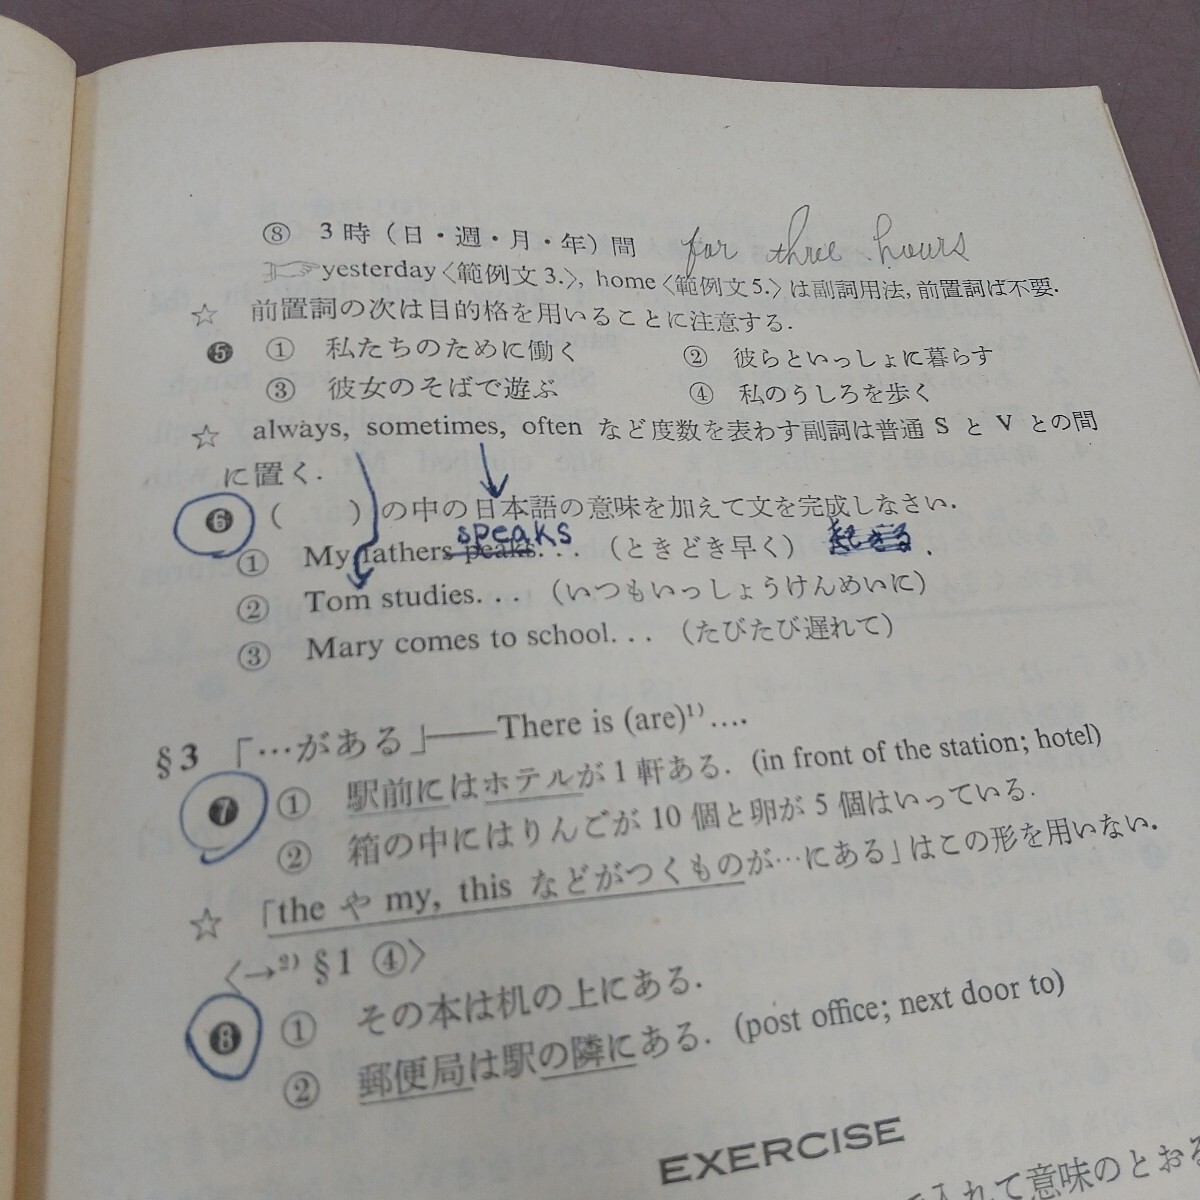 ⑧ 3時(日・週・月・年)間 for three hours
☞yesterday〈範例文3.〉, home〈範例文5.〉は副詞用法, 前置詞ば不要.
☆ 前置詞の次は目的格を用いることに注意する.
❺ ① 私たちのために働く ② 彼らといっしょに暮らす
③ 彼女のそばで遊ぶ ④ 私のうしろを歩く
☆ always, sometimes, often など度数を表わす副詞は普通 S と V との間
に置く.
❻ ( )の中の日本語の意味を加えて文を完成しなさい.
speaks
① My fathers peaks... (ときどき早く)
② Tom studies... (いつもいっしょうけんめいに)
③ Mary comes to school... (たびたび遅れて)
§3 「…がある」——There is (are)¹⁾....
❼ ① 駅前にはホテルが1軒ある. (in front of the station; hotel)
② 箱の中にはりんごが10個と卵が5個はいっている.
☆ 「the や my, this などがつくものが…にある」はこの形を用いない.
〈→²⁾ §1 ④〉
❽ ① その本は机の上にある.
② 郵便局は駅の隣にある. (post office; next door to)
EXERCISE
入れて意味のとおる